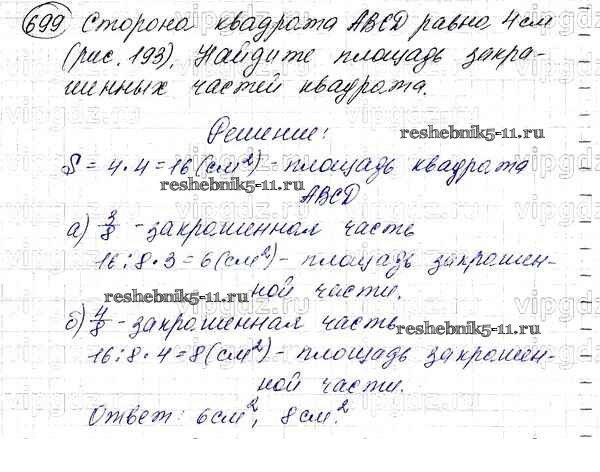 699 Сторона квадрата ABCD равна 4 см
(рис. 193). Найдите площадь закра-
шенных частей квадрата.
Решение:
reshebnik5-11.ru
S = 4 · 4 = 16 (см²) - площадь квадрата
reshebnik5-11.ru
ABCD
а) 3/8 - закрашенная часть
16 : 8 · 3 = 6 (см²) - площадь закрашен-
ной части.
reshebnik5-11.ru
б) 4/8 - закрашенная часть
reshebnik5-11.ru
16 : 8 · 4 = 8 (см²) - площадь закрашен-
ной части.
Ответ: 6 см², 8 см².
reshebnik5-11.ru